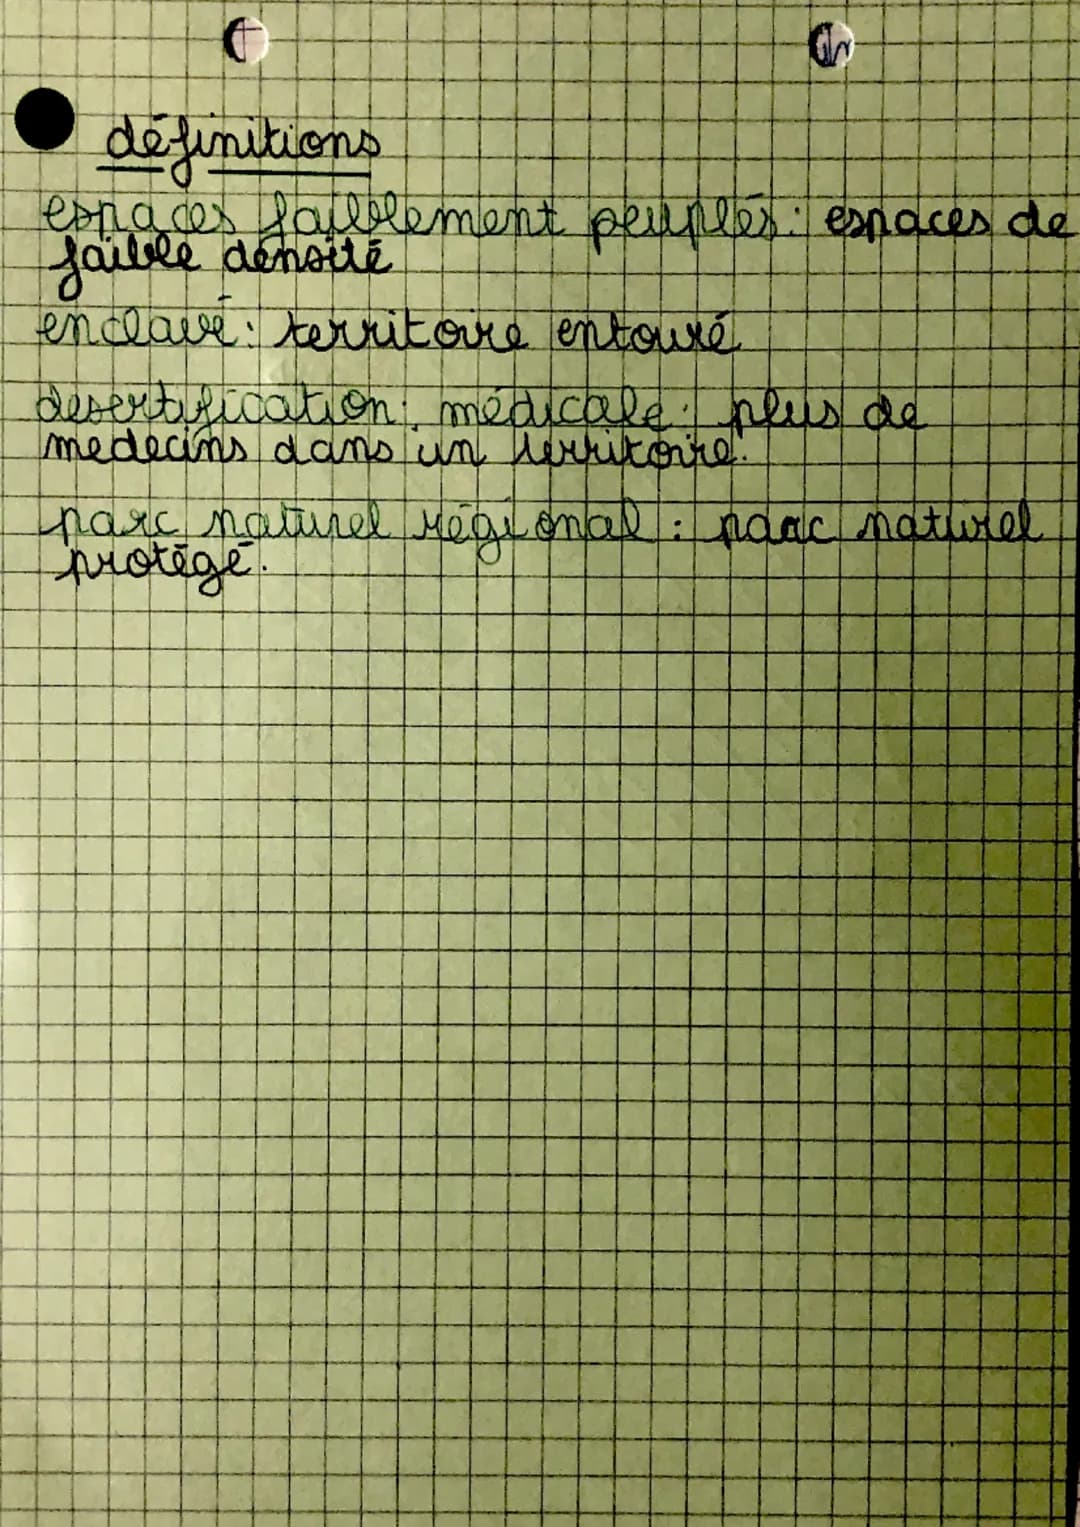 définitions
espaces faiblement peuplés : espaces de
faible densité
enclavé : territoire entouré
désertification : médicale : plus de
medecins dans un territoire.
parc naturel régional : parc naturel
protégé.